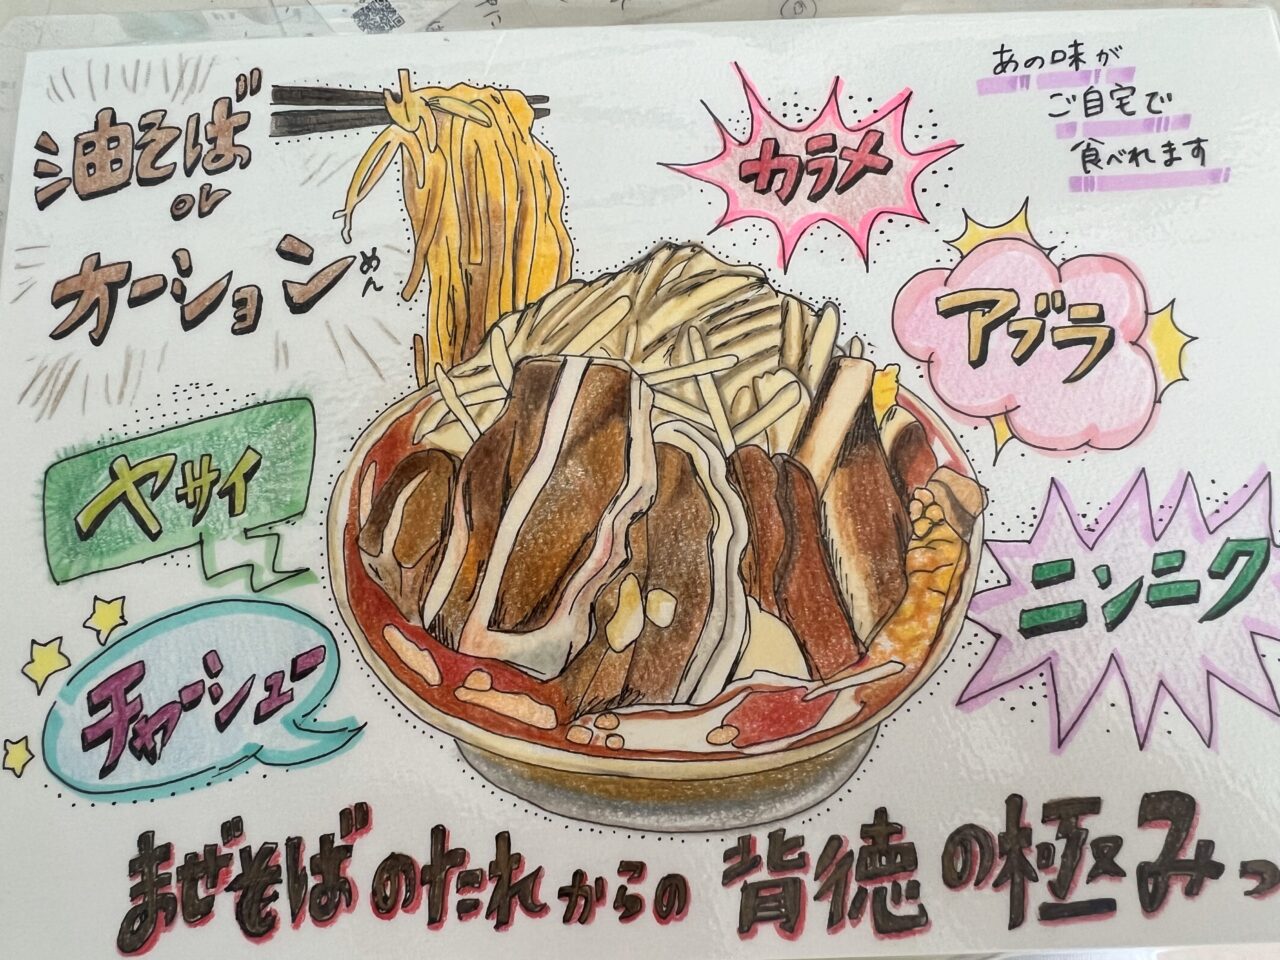 油そば
or
オーションめん
カラメ
あの味が
ご自宅で
食べれます
アブラ
ヤサイ
ニンニク
チャーシュー
まぜそばのたれからの背徳の極みっ